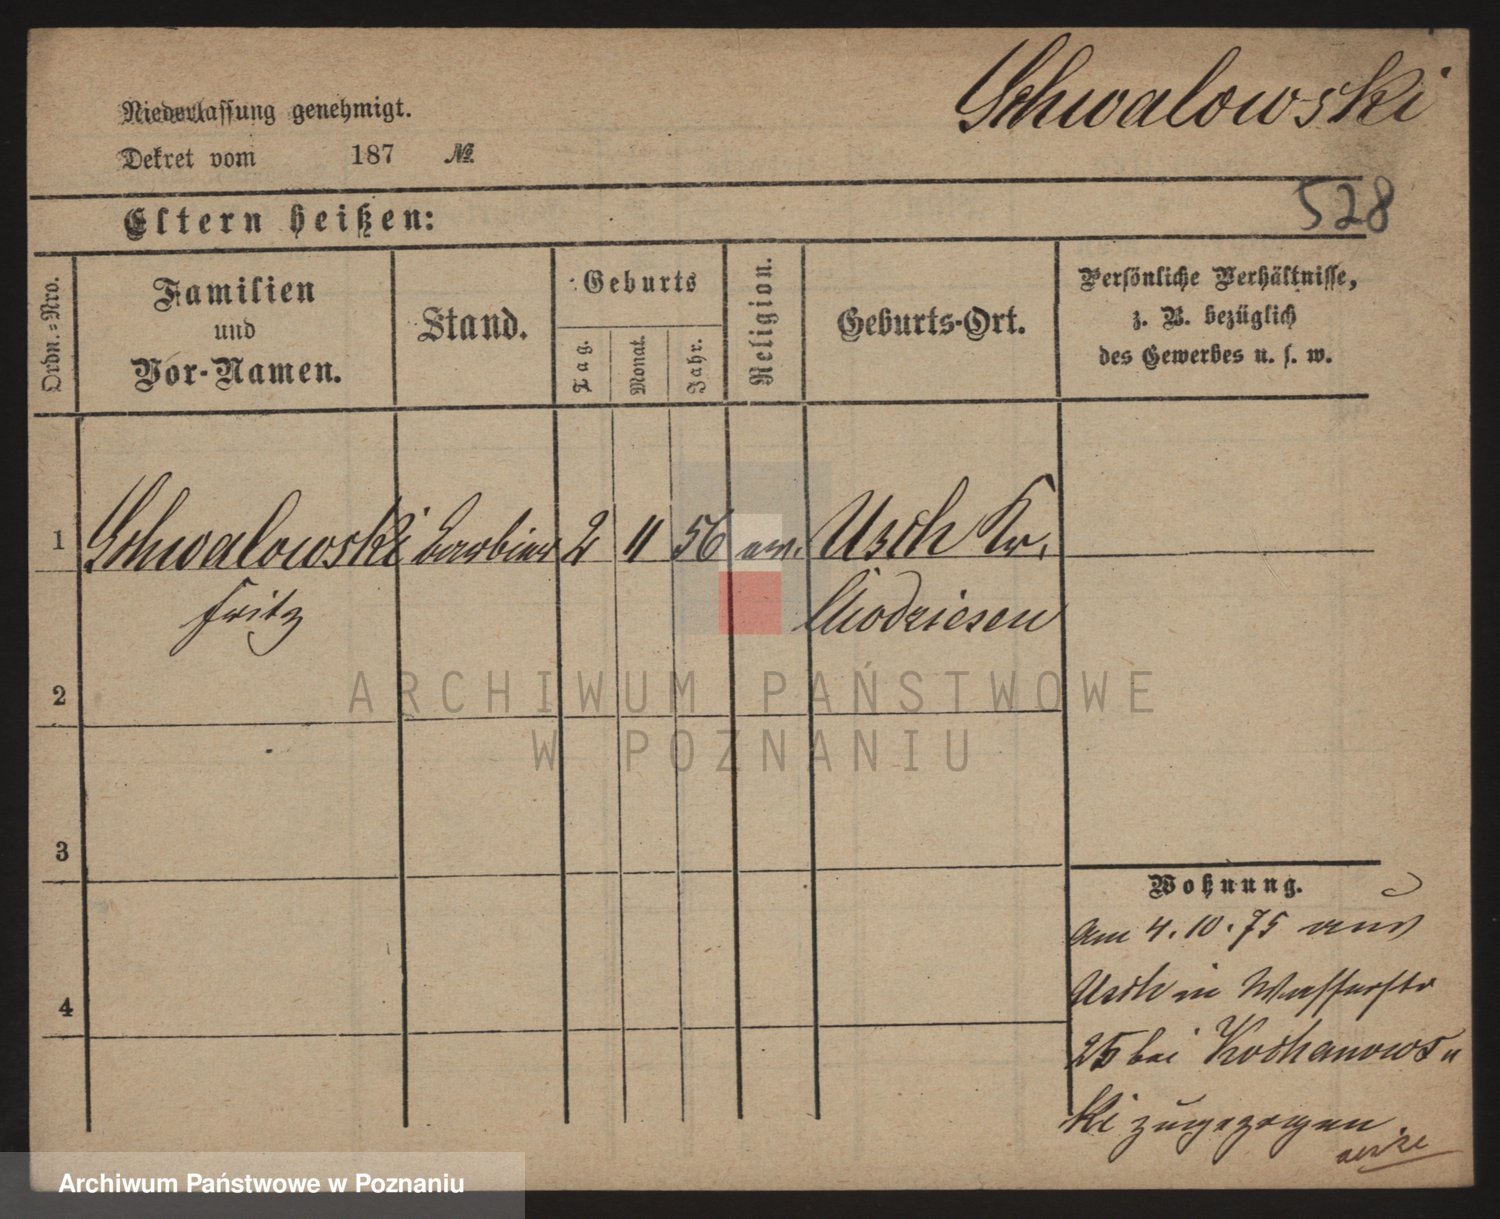 Schwalowski
Niederlassung genehmigt.
Dekret vom 187 №
528
Eltern heißen:
Ordn.=Nro.
Familien
und
Vor-Namen.
Stand.
Geburts
Tag.
Monat.
Jahr.
Religion.
Geburts-Ort.
Persönliche Verhältnisse,
z. B. bezüglich
des Gewerbes u. s. w.
1 Schwalowski Barbier 2 11 56 ev. Usch Kr.
Fritz Chodziesen
ARCHIWUM PAŃSTWOWE
W POZNANIU
2
3
4
Wohnung.
Am 4.10.75 aus
Usch in Wasserstr
25 bei Kochanows"
ki zugezogen
Archiwum Państwowe w Poznaniu